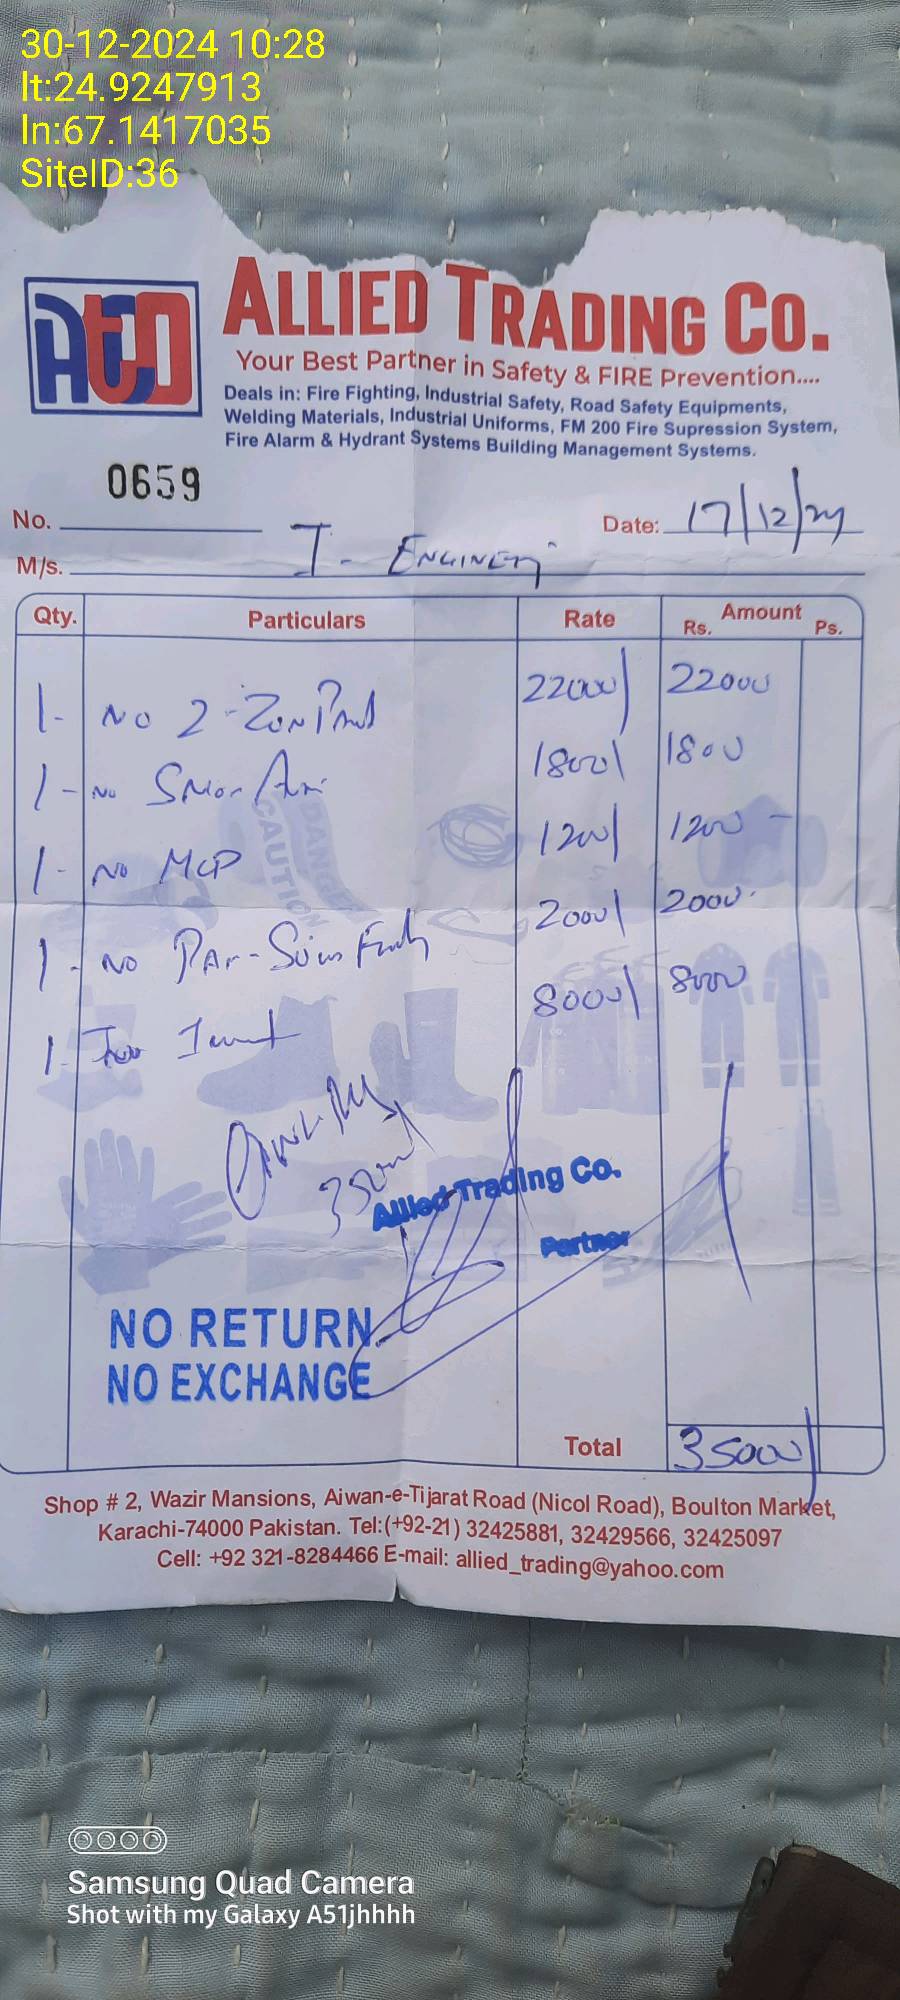 30-12-2024 10:28
lt:24.9247913
ln:67.1417035
SiteID:36
ATCO
ALLIED TRADING CO.
Your Best Partner in Safety & FIRE Prevention....
Deals in: Fire Fighting, Industrial Safety, Road Safety Equipments,
Welding Materials, Industrial Uniforms, FM 200 Fire Supression System,
Fire Alarm & Hydrant Systems Building Management Systems.
0659
No. Date: 17/12/24
M/s. I - 
Qty. Particulars Rate Amount
Rs. Ps.
1- No 2-Zon 22000/ 22000
1- No 1800/ 1800
1- No MCP 1200/ 1200 -
1- No 2000/ 2000
1- 8000/ 8000
CAUTION DANGER
35000/
Allied Trading Co.
Partner
NO RETURN
NO EXCHANGE
Total 35000/
Shop # 2, Wazir Mansions, Aiwan-e-Tijarat Road (Nicol Road), Boulton Market,
Karachi-74000 Pakistan. Tel:(+92-21) 32425881, 32429566, 32425097
Cell: +92 321-8284466 E-mail: allied_trading@yahoo.com
Samsung Quad Camera
Shot with my Galaxy A51jhhhh